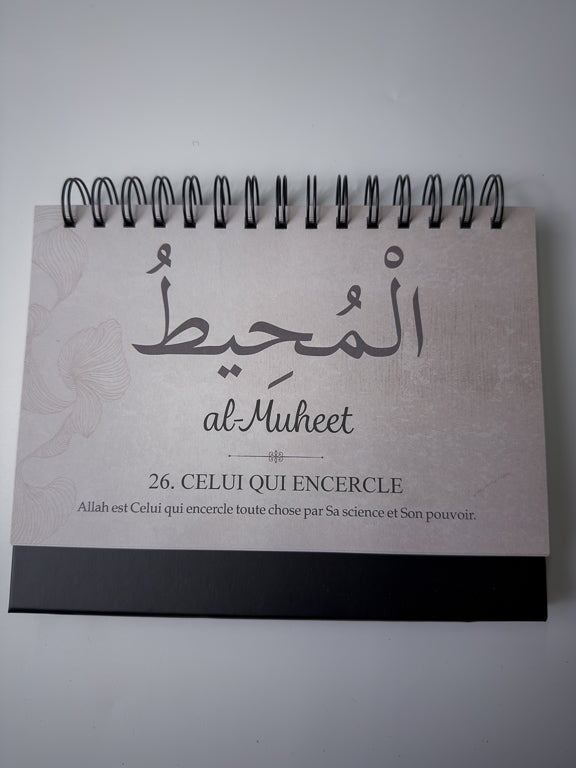 الْمُحِيطُ
al-Muheet
26. CELUI QUI ENCERCLE
Allah est Celui qui encercle toute chose par Sa science et Son pouvoir.